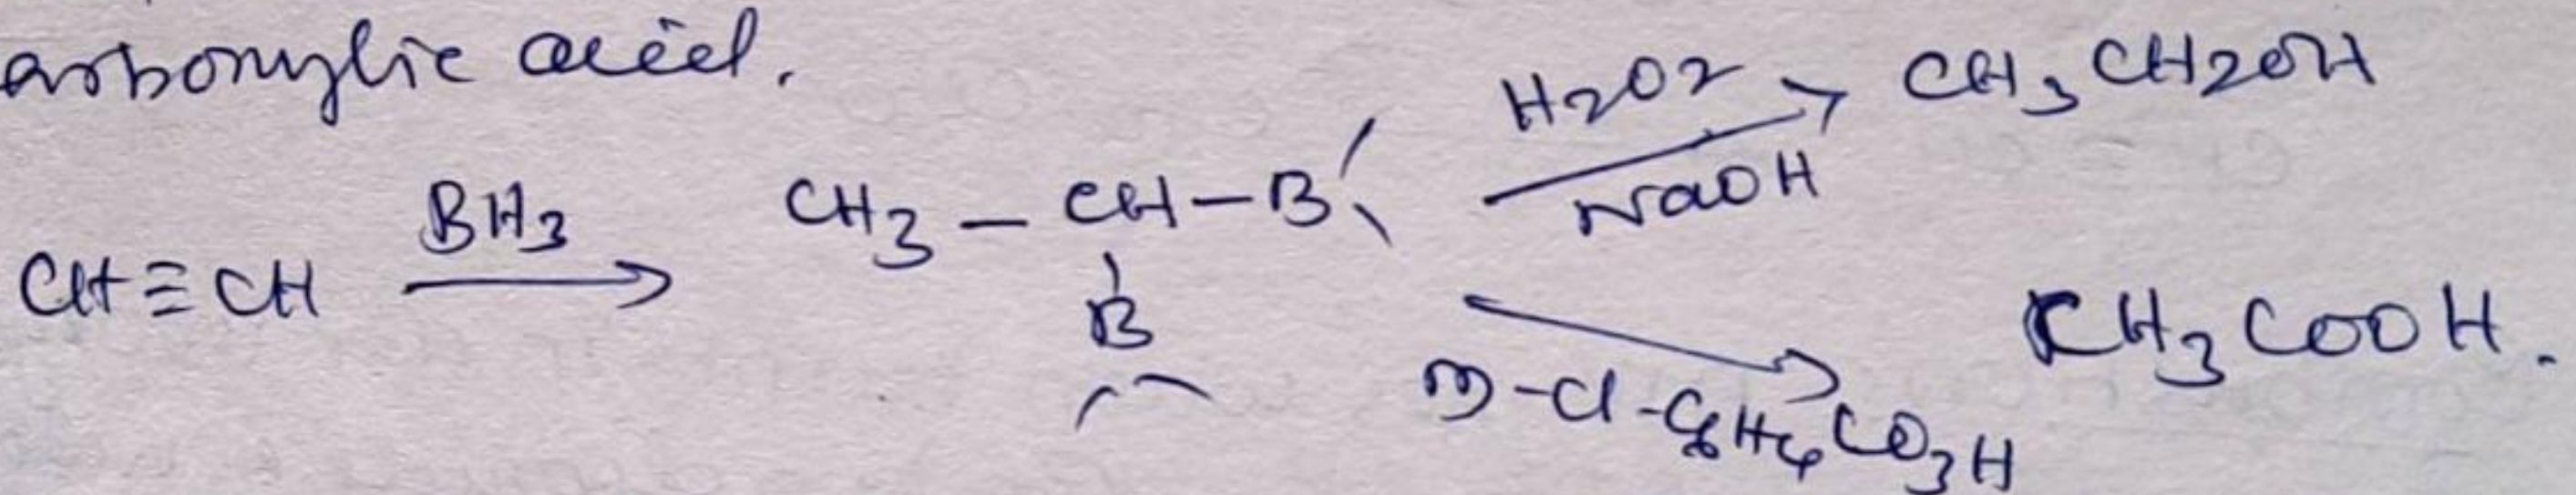 arbonylic acid.
CH≡CH BH3 → CH3 – CH – B H2O2 / NaOH → CH3CH2OH
B
m-Cl-C6H4CO3H → CH3COOH.